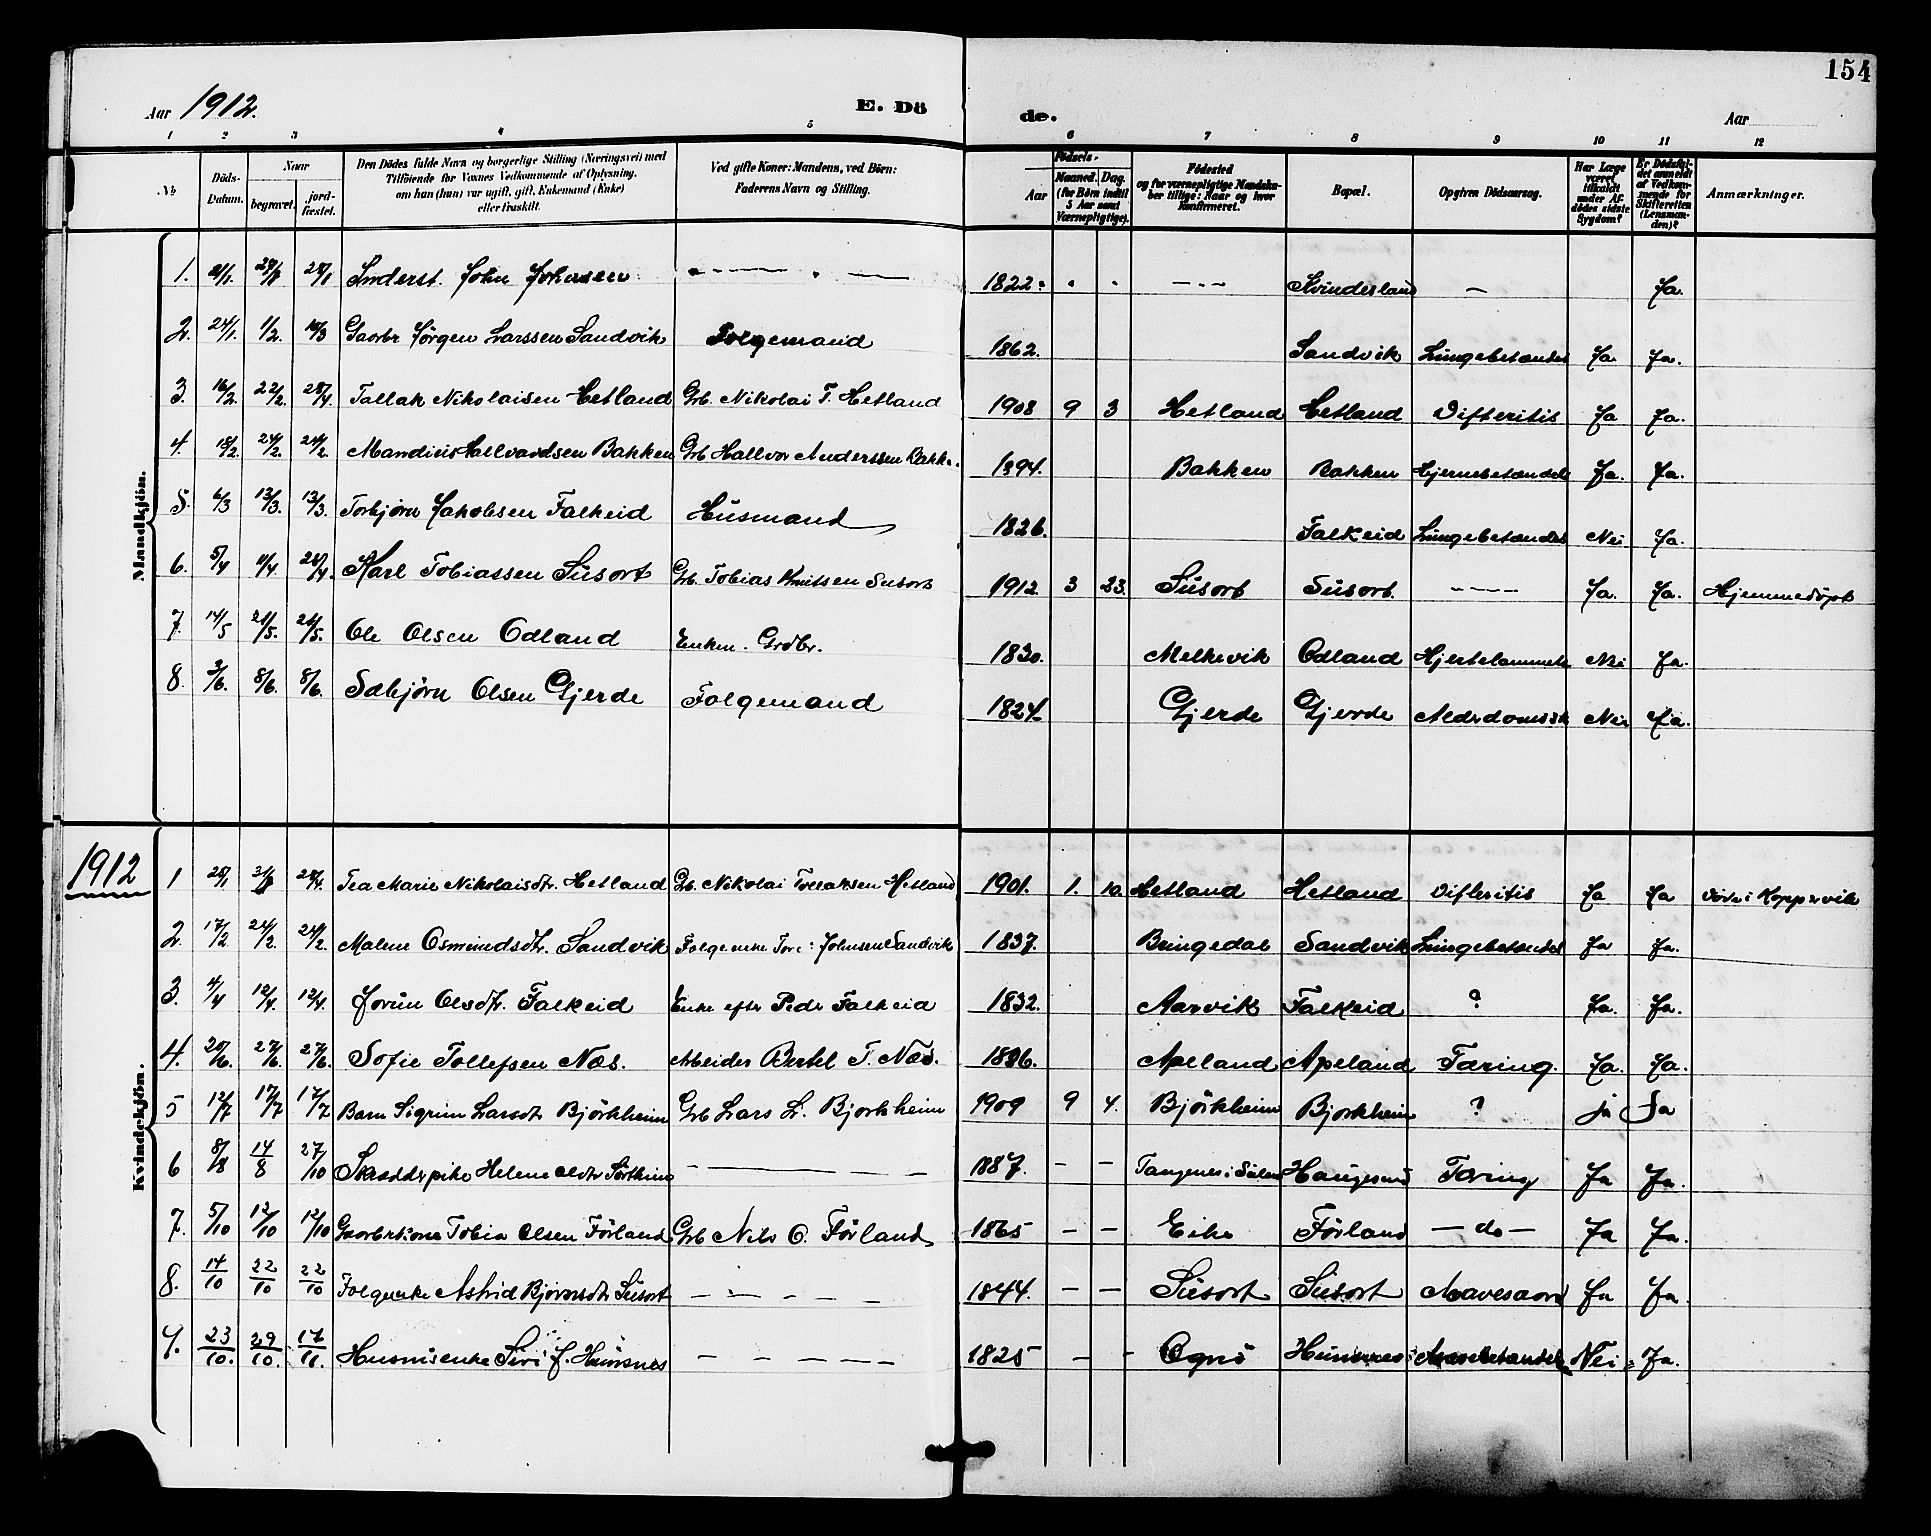 154
Aar 1912. E. Dö de. Aar
1 2 3 4 5 6 7 8 9 10 11 12
№ Döds-Datum. Naar begravet. jordfæstet. Den Dödes fulde Navn og borgerlige Stilling (Næringsvei) med Tilföiende for Voxnes Vedkommende af Oplysning, om han (hun) var ugift, gift, Enkemand (Enke) eller fraskilt. Ved gifte Koner: Mandens, ved Börn: Faderens Navn og Stilling. Födsels- Aar Maaned. Dag. (for Börn indtil 5 Aar samt Værnepligtige). Födested og for værnepligtige Mandskaber tillige: Naar og hvor konfirmeret. Bopæl. Opgiven Dödsaarsag. Har Læge været tilkaldt under Afdödes sidste Sygdom? Er Dödsfaldet anmeldt af Vedkommende for Skifteretten (Lensmanden)? Anmærkninger.
Mandkjön.
1. John Johnsen 1822 Kvindesland — Ja.
2. 24/1. 1/2. Gaarbr Jörgen Larssen Sandvik Folgemand 1862. Sandvik Lungebetændel Ja. Ja.
3. 16/2. 22/2. 28/4. Tallak Nikolaisen Hetland Grb. Nikolai T. Hetland 1908 9 3 Hetland Hetland Difteritis Ja Ja.
4. 18/2. 24/2. 24/2. Hallvardsen Bakken Grb Hallvor Anderssen Bakke. 1894. Bakken Bakken Hjernebetændels Ja. Ja.
5. 6/3 13/3. 13/3. Torbjörn Jakobsen Falkeid Husmand 1826. Falkeid Lungebetændel Nei Ja.
6. 5/4 11/4 28/4. Karl Tobiassen Susort Grb. Tobias Knutsen Susort 1912. 3 23. Susort Susort. ---- Ja. Ja. Hjemmedöpt
7. 14/5 21/5. 21/5. Ole Olsen Odland Enkem. Grdbr. 1830. Melkevik Odland Hjertelammels Nei Ja.
8. 3/6. 8/6. 8/6. Sæbjörn Olsen Gjerde Folgemand 1824. Gjerde Gjerde Alderdomssk Nei Ja.
1912
Kvindekjön.
1 25/1 28/4. Tea Marie Nikolaisdtr. Hetland Grb. Nikolai Tollaksen Hetland 1901. 1. 10. Hetland Hetland Difteritis Ja Ja Döde i Koppervik
2. 17/2 24/2. 24/2. Malene Osmundsdtr. Sandvik Folgeenke Johnsen Sandvik 1837. Bringedal Sandvik Lungebetændel Ja Ja.
3. 4/4 12/4. 12/4. Jorun Olsdtr. Falkeid Enke efter Peder Falkeid 1832. Aarvik Falkeid ? Ja. Ja.
4. 20/6. 27/6. 27/6. Sofie Tollefsen Næs. Arbeider Bertel T. Næs. 1886. Apeland Apeland Tæring. Ja. Ja.
5 12/7 17/7 17/7 Barn Sigrun Larsdtr Björkheim Grb Lars L. Bjorkheim 1909 9 4. Björkheim Bjorkheim ? ja Ja
6 8/8 14/8 27/10 Skrædderpike Helene Oldtr Sörtheim — — — 1887. — — Haugesund Tæring Ja Ja.
7. 5/10 12/10 12/10 Gaarbrkone Tobia Olsen Förland Grb Nils O. Förland 1865 — — Eike Förland — do — Ja Ja.
8. 14/10 22/10 22/10 Folgeenke Astrid Björnsdtr Susort — — — — 1844. — — Susort Susort Mavesaar Ja Ja.
9. 23/10. 29/10. 17/11. Husmsenke Siri J. Hunsnes — — — — 1825 — — Ognö Nei Ja.